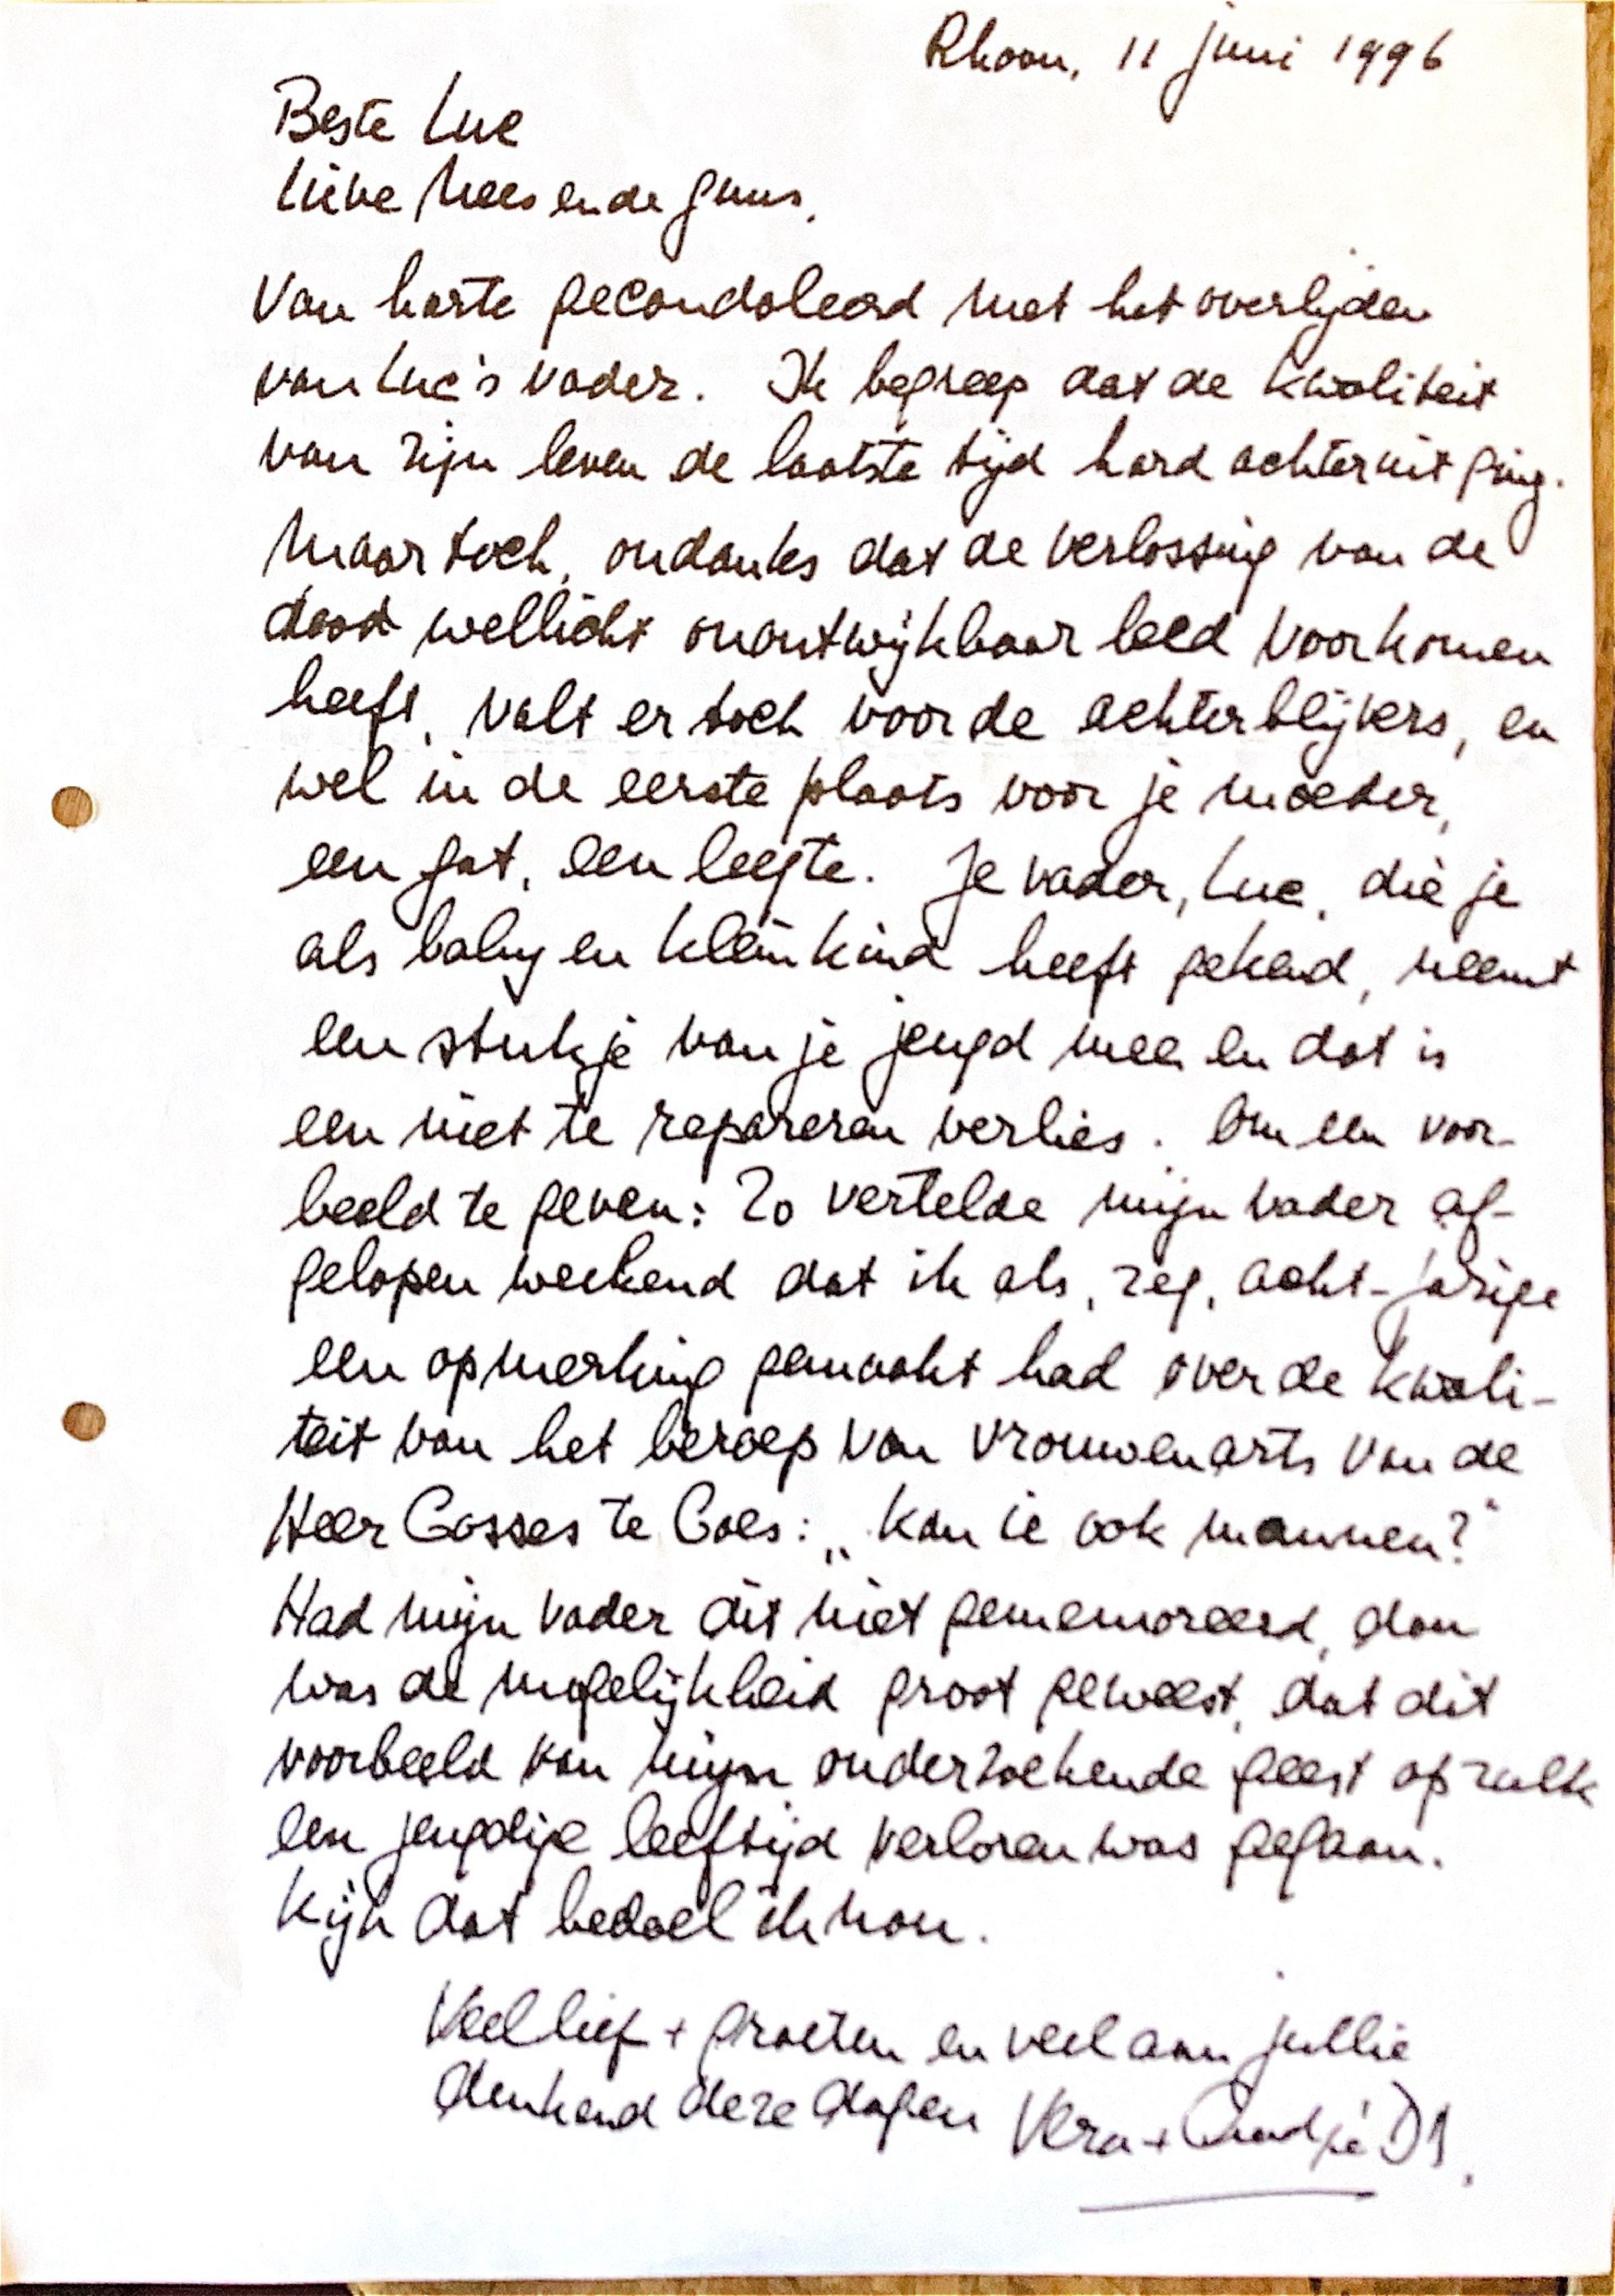 Rhoon, 11 juni 1996
Beste Luc
Lieve Mees ende Guus,
Van harte gecondoleerd met het overlijden
van Luc's vader. Ik begreep dat de kwaliteit
van zijn leven de laatste tijd hard achteruit ging.
Maar toch, ondanks dat de verlossing van de
dood wellicht onontwijkbaar leed voorkomen
heeft, valt er toch voor de achterblijvers, en
wel in de eerste plaats voor je moeder,
een gat, een leegte. Je vader, Luc, die je
als baby en klein kind heeft gekend, neemt
een stukje van je jeugd mee en dat is
een niet te repareren verlies. Om een voor-
beeld te geven: Zo vertelde mijn vader af-
gelopen weekend dat ik als, zeg, acht-jarige
een opmerking gemaakt had over de kwali-
teit van het beroep van vrouwenarts van de
Heer Gosses te Goes: „Kan ie ook mannen?"
Had mijn vader dit niet gememoreerd, dan
was de mogelijkheid groot geweest, dat dit
voorbeeld van mijn onderzoekende geest op zulk
een jeugdige leeftijd verloren was gegaan.
Kijk dat bedoel ik nou.
Veel lief + groeten en veel aan jullie
denkend deze dagen Vera +